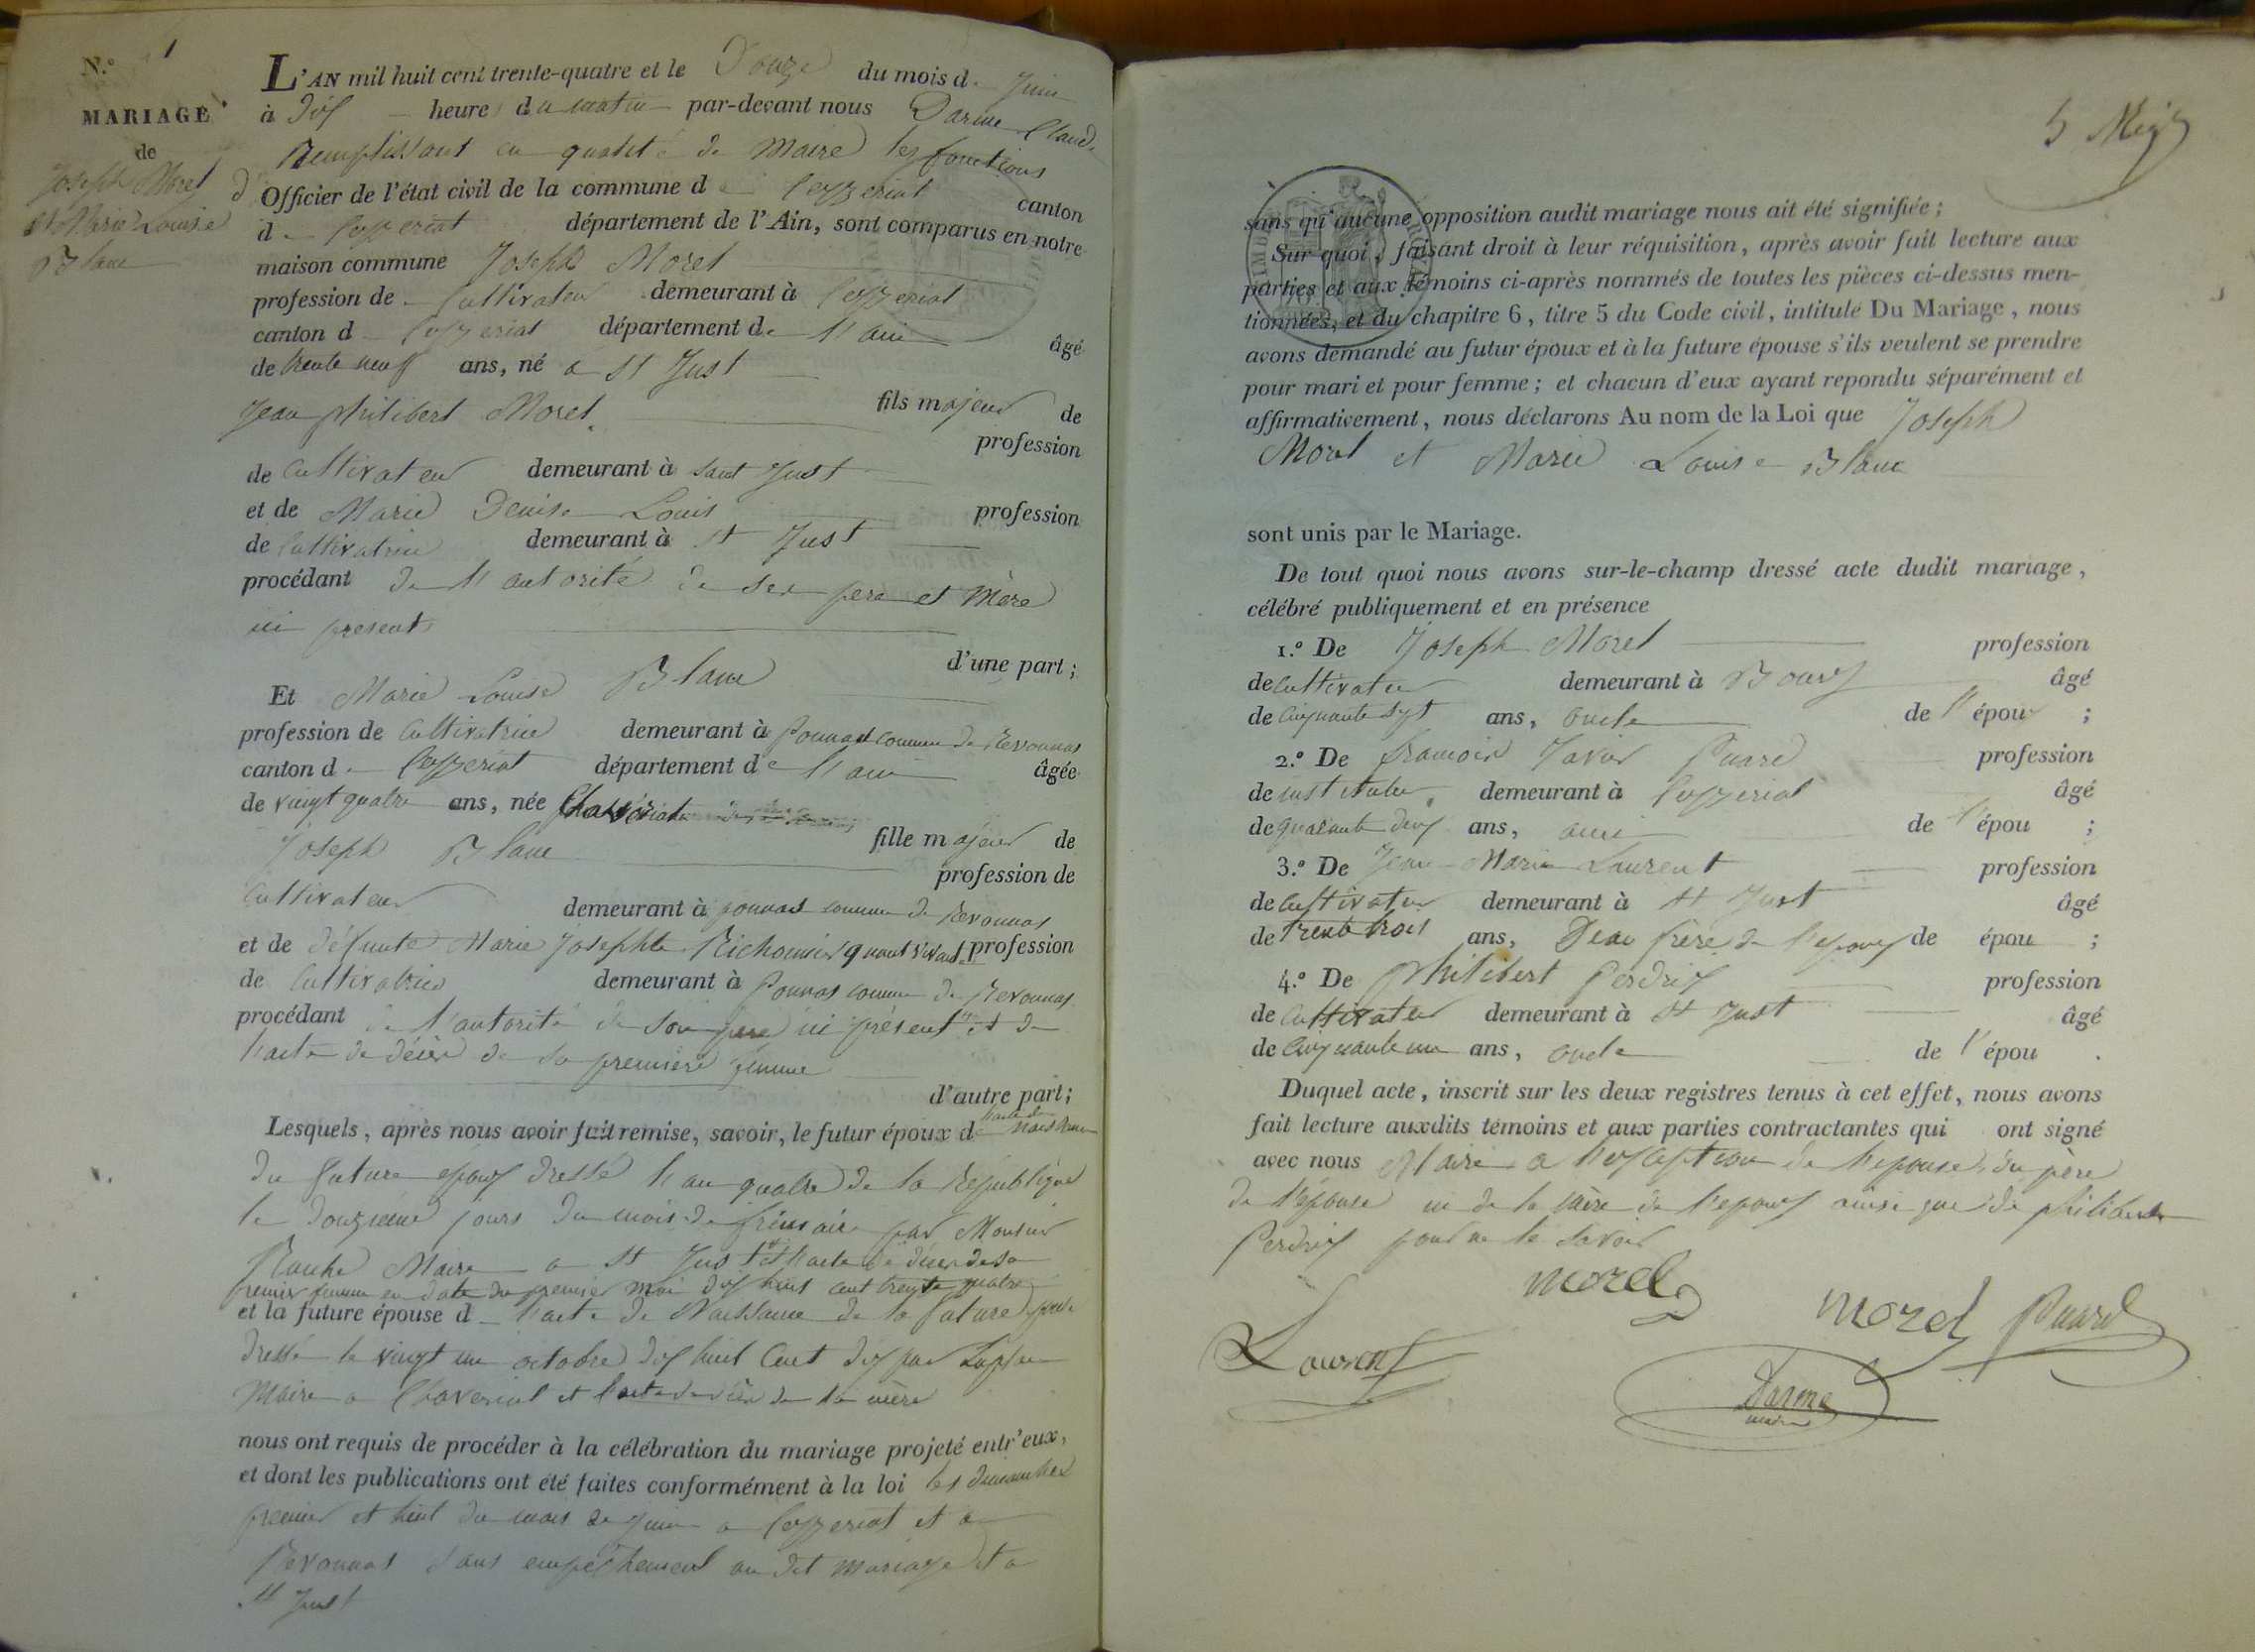 N.° 1
MARIAGE
de
Joseph Morel
et Marie Louise
Blanc
L'AN mil huit cent trente-quatre et le Douze du mois de Juin
à Dix heure du matin par-devant nous Darme Claude
Remplissant en qualité de Maire les fonctions
d'Officier de l'état civil de la commune de Ceyzeriat canton
de Ceyzeriat département de l'Ain, sont comparus en notre
maison commune Joseph Morel
profession de Cultivateur demeurant à Ceyzeriat
canton de Ceyzeriat département de l'ain âgé
de trente neuf ans, né à St Just
fils majeur de
Jean philibert Morel profession
de Cultivateur demeurant à Saint Just
et de Marie Denise Louis profession
de Cultivatrice demeurant à St Just
procédant de l'autorité de ses pere et Mère
ici presents
d'une part;
Et Marie Louise Blanc
profession de Cultivatrice demeurant à Pounas commune de Revonnas
canton de Ceyzeriat département de l'ain âgée
de vingt quatre ans, née Chavériat
fille majeur de
Joseph Blanc profession de
Cultivateur demeurant à pounas commune de Revonnas
et de défunte Marie Josephte Richomier quant vivante profession
de Cultivatrice demeurant à Pounas commune de Revonnas
procédant de l'autorité de son pere ici présent et de
l'acte de décès de sa premiere femme
d'autre part;
Lesquels, après nous avoir fait remise, savoir, le futur époux de l'acte de Naissance
du future époux dressé l'an quatre de la République
le douzieme jours du mois de frimaire par Monsieur
Maire a St Just et l'acte de décès de sa
premier femme en date du premier Mai dix huit cent trente quatre
et la future épouse d l'acte de Naissance de la future
dressé le vingt un octobre dix huit Cent dix par
Maire a Chaveriat et l'acte de décès de sa mère
nous ont requis de procéder à la célébration du mariage projeté entr'eux,
et dont les publications ont été faites conformément à la loi les dimanches
premier et huit du mois de Juin a Ceyzeriat et a
Revonnas sans empéchement au dit Mariage et a
St Just
sans qu'aucune opposition audit mariage nous ait été signifiée;
Sur quoi, faisant droit à leur réquisition, après avoir fait lecture aux
parties et aux témoins ci-après nommés de toutes les pièces ci-dessus men-
tionnées, et du chapitre 6, titre 5 du Code civil, intitulé Du Mariage, nous
avons demandé au futur époux et à la future épouse s'ils veulent se prendre
pour mari et pour femme; et chacun d'eux ayant repondu séparément et
affirmativement, nous déclarons Au nom de la Loi que Joseph
Morel et Marie Louise Blanc
sont unis par le Mariage.
De tout quoi nous avons sur-le-champ dressé acte dudit mariage,
célébré publiquement et en présence
1.° De Joseph Morel profession
de Cultivateur demeurant à Bourg âgé
de Cinquante sept ans, oncle de l'époux;
2.° De françois Xavier Puard profession
de instituteur demeurant à Ceyzeriat âgé
de quarante deux ans, ami de l'épou;
3.° De Jean Marie Laurent profession
de Cultivateur demeurant à St Just âgé
de trente trois ans, Beau frère de l'époux de épou;
4.° De philibert Perdrix profession
de Cultivateur demeurant à St Just âgé
de Cinquante un ans, oncle de l'épou.
Duquel acte, inscrit sur les deux registres tenus à cet effet, nous avons
fait lecture auxdits témoins et aux parties contractantes qui ont signé
avec nous Maire a l'exseption de l'epouse, du père
de l'épouse ni de la mère de l'epoux ainsi que de philibert
Perdrix pour ne le savoir
morel
morel Puard
Laurent
Darme
maire